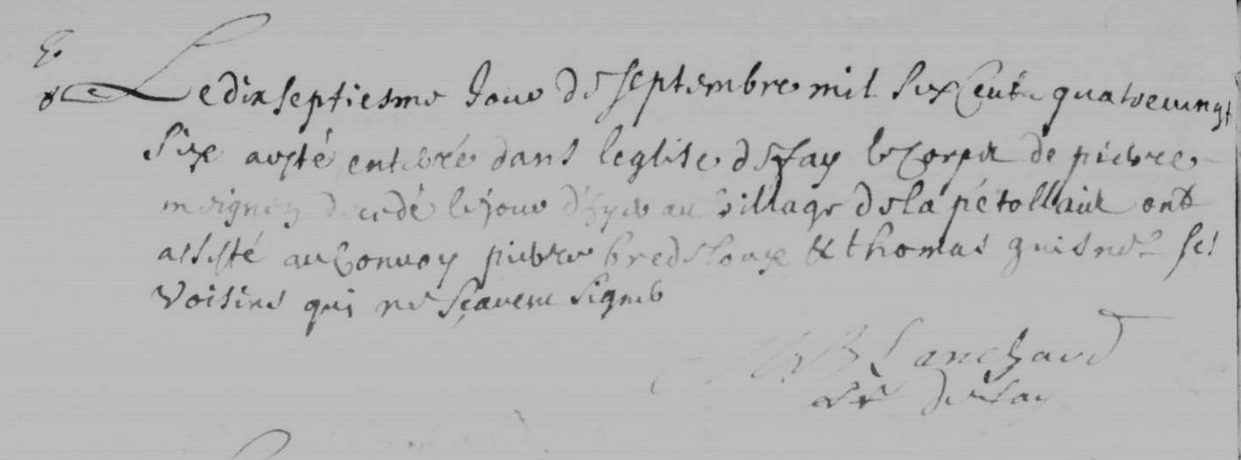 Le dixseptiesme Jour de septembre mil six Cents quatrevingt
six a esté enterré dans leglise de fay le Corps de pierre
decedé le jour d'hyer au village de la pétollaux ont
assisté au Convoy pierre bredeloux & thomas guisner ses
voisins qui ne sçavent signer
Lanchaud
de fay